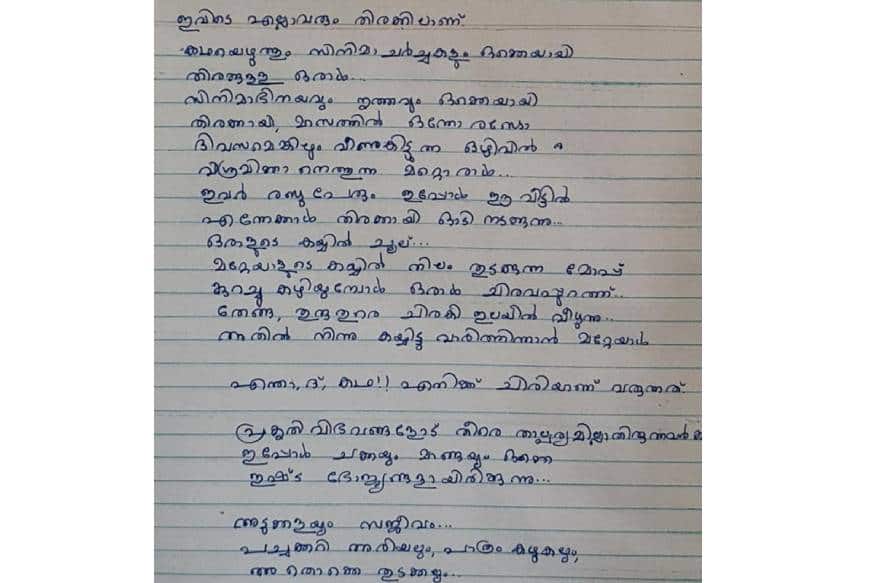 ഇവിടെ എല്ലാവരും തിരക്കിലാണ്.
കഥയെഴുത്തും സിനിമാ ചർച്ചകളും ഒക്കെയായി
തിരക്കുള്ള ഒരാൾ...
സിനിമാഭിനയവും നൃത്തവും ഒക്കെയായി
തിരക്കായി, മാസത്തിൽ ഒന്നോ രണ്ടോ
ദിവസമെങ്കിലും വീണുകിട്ടുന്ന ഒഴിവിൽ
വിശ്രമിക്കാനെത്തുന്ന മറ്റൊരാൾ...
ഇവർ രണ്ടു പേരും ഇപ്പോൾ ഈ വീട്ടിൽ
എന്നേക്കാൾ തിരക്കായി ഓടി നടക്കുന്നു...
ഒരാളുടെ കയ്യിൽ ചൂല്...
മറ്റേയാളുടെ കയ്യിൽ നിലം തുടക്കുന്ന മോപ്പ്
കുറച്ചു കഴിയുമ്പോൾ ഒരാൾ ചിരവപ്പുറത്ത്..
തേങ്ങ, തുരുതുരെ ചിരകി ഇലയിൽ വീഴുന്നു..
അതിൽ നിന്നു കയ്യിട്ടു വാരിത്തിന്നാൻ മറ്റേയാൾ
എന്താ, ദ്, കഥ!! എനിക്ക് ചിരിയാണ് വരുന്നത്.
പ്രകൃതി വിഭവങ്ങളോട് തീരെ താല്പര്യമില്ലാതിരുന്നവർക്ക്
ഇപ്പോൾ ചക്കയും മാങ്ങയും ഒക്കെ
ഇഷ്ട ഭോജ്യങ്ങളായിരിക്കുന്നു...
അടുക്കളയും സജീവം...
പച്ചക്കറി അരിയലും, പാത്രം കഴുകലും,
അതൊക്കെ തുടക്കലും...